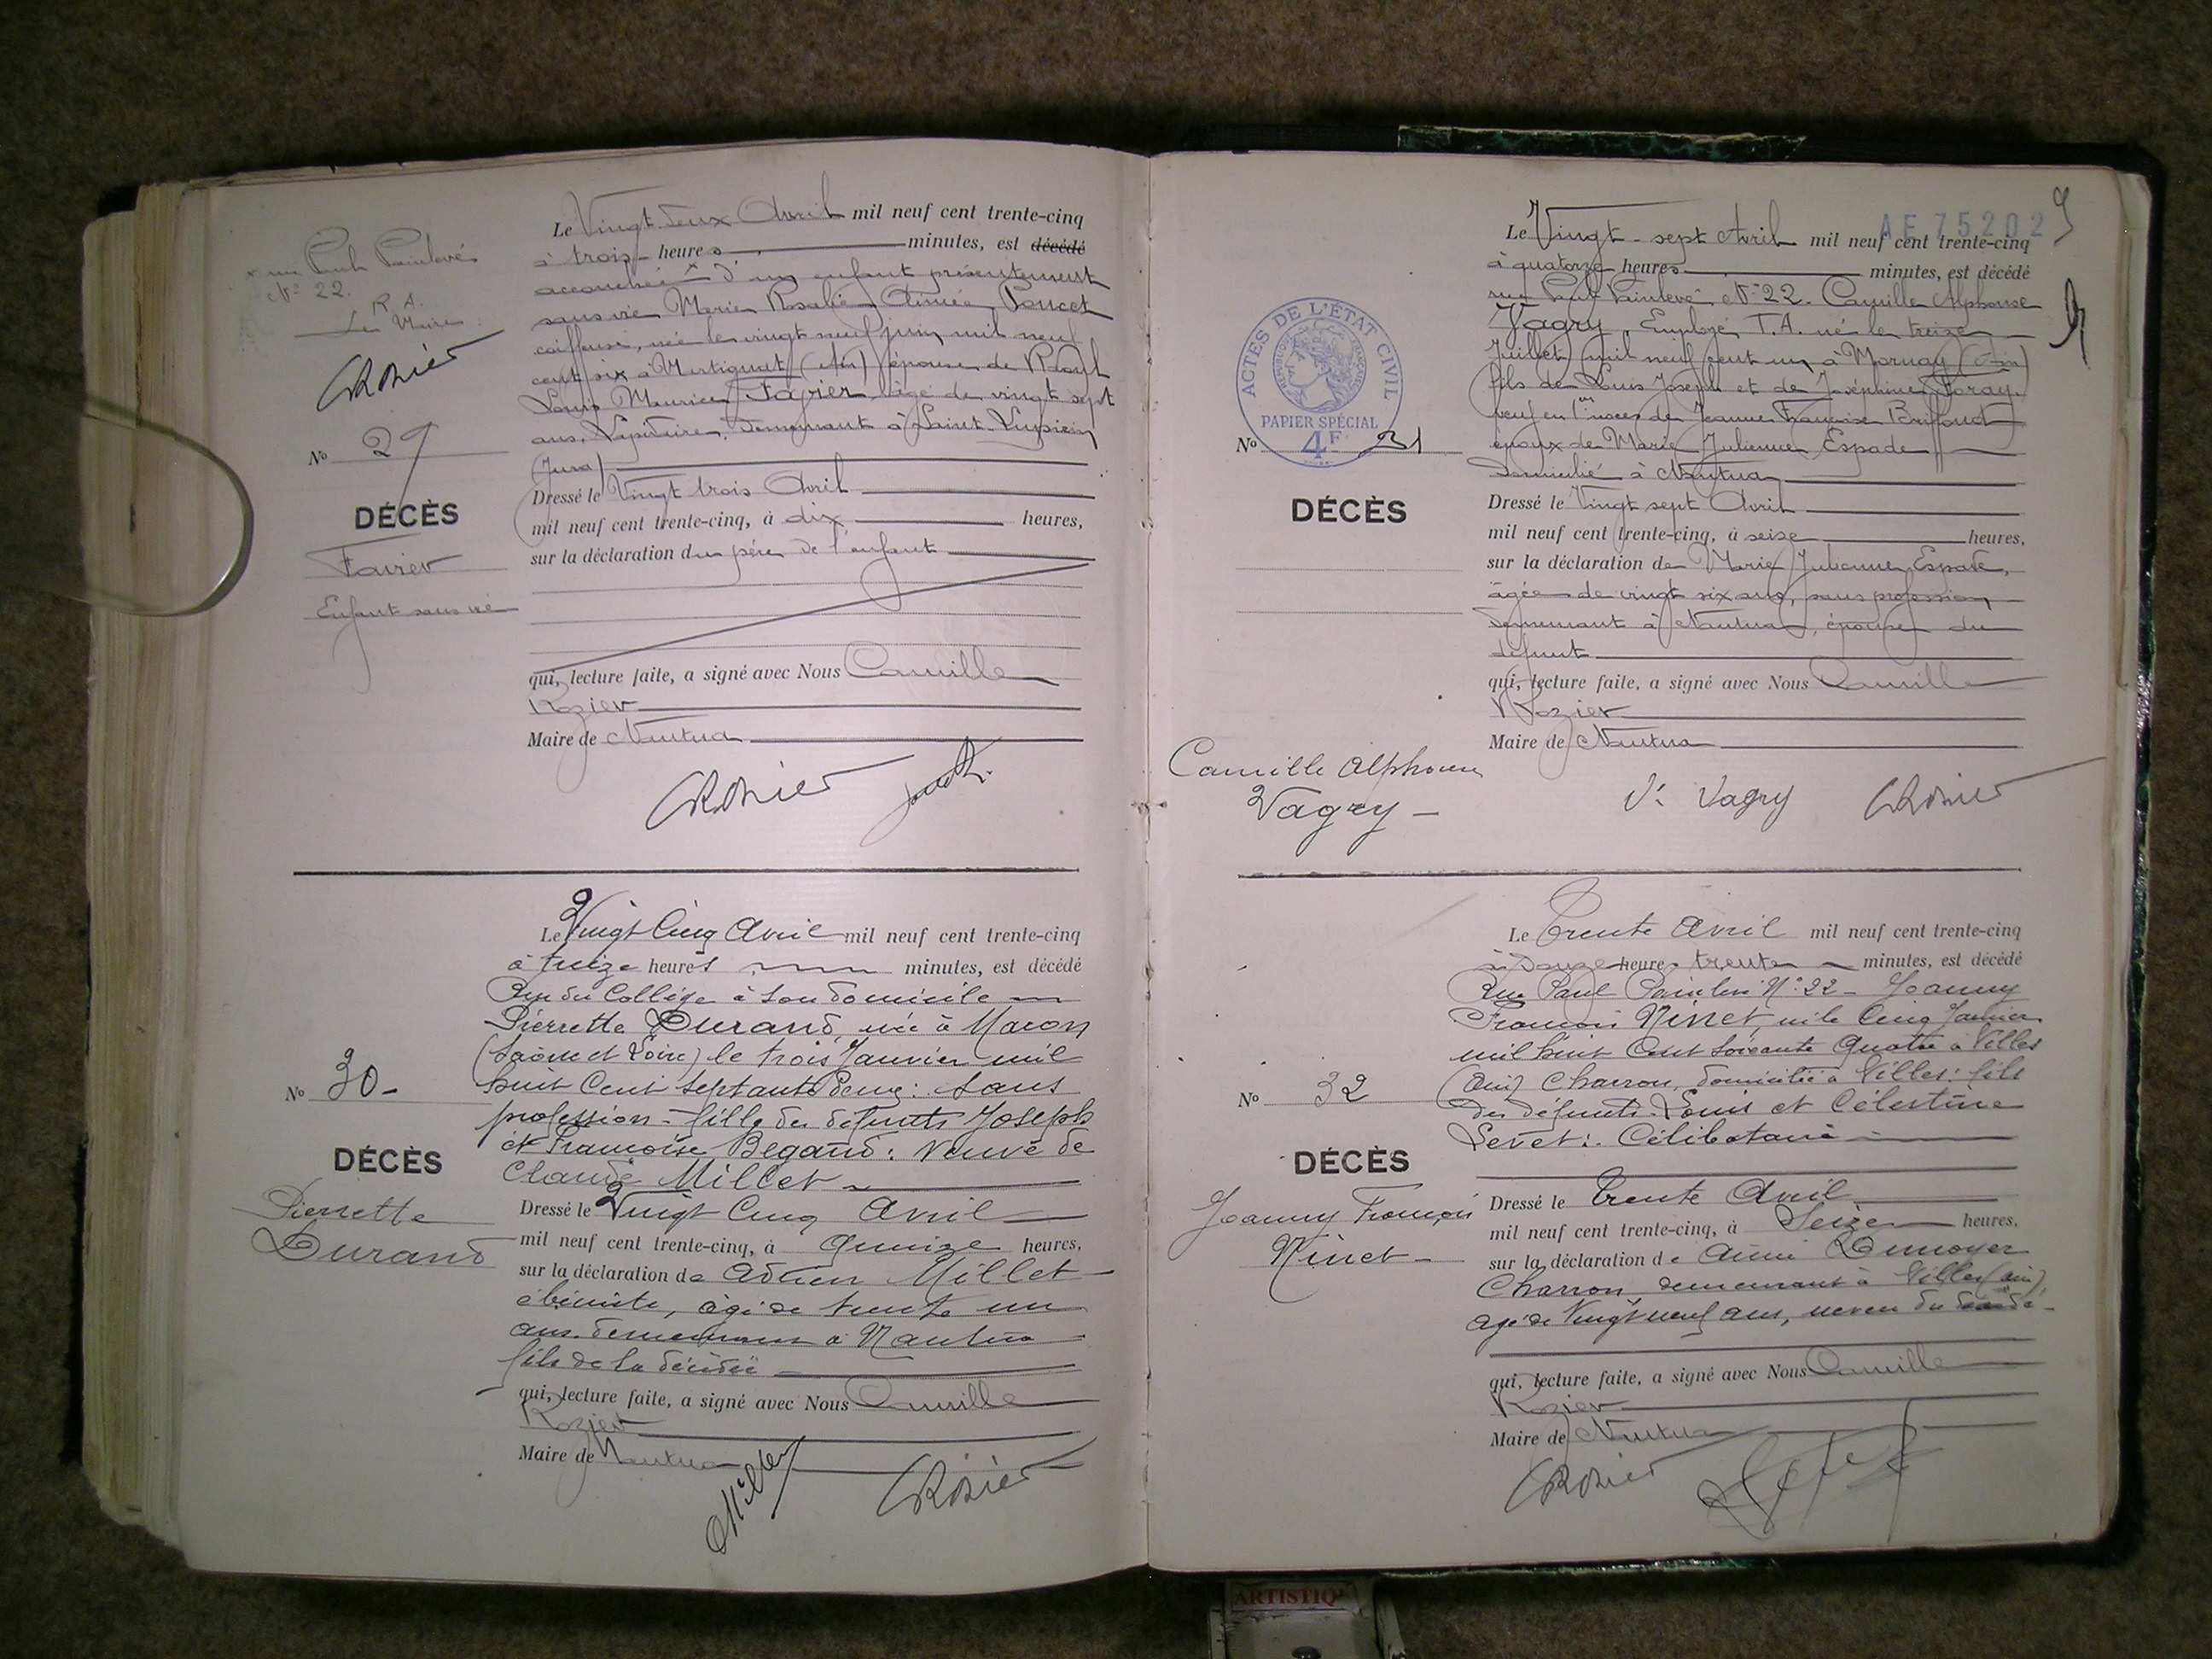 Le Vingt-deux Avril mil neuf cent trente-cinq
à trois heures minutes, est décédé
accouchée d'un enfant présentement
sans vie Marie Rosalie Aimée Poncet
coiffeuse, née le vingt neuf juin mil neuf
cent six à Martignat (Ain) épouse de Raoul
Louis Maurice Favier âgé de vingt sept
ans, Lapidaire, demeurant à Saint-Lupicin
(Jura)
Dressé le Vingt trois Avril
mil neuf cent trente-cinq, à dix heures,
sur la déclaration du père de l'enfant
qui, lecture faite, a signé avec Nous Camille
Rozier
Maire de Nantua
x rue Paul Painlevé
N° 22.
R. A.
Le Maire
CRozier
No 29
DÉCÈS
Favier
Enfant sans vie
CRozier
Le Vingt Cinq Avril mil neuf cent trente-cinq
à treize heures minutes, est décédé
Rue du Collège à son domicile
Pierrette Durand, née à Macon
(Saône et Loire) le trois Janvier mil
huit Cent septante deux: sans
profession - fille des défunts Joseph
et Françoise Begand: Veuve de
Claude Millet
No 30-
DÉCÈS
Pierrette
Durand
Dressé le Vingt Cinq Avril
mil neuf cent trente-cinq, à Quinze heures,
sur la déclaration de Adrien Millet
ébéniste, âgé de trente un
ans demeurant à Nantua
fils de la décédée
qui, lecture faite, a signé avec Nous Camille
Rozier
Maire de Nantua
AMillet CRozier
AE 75202 9
Le Vingt-sept Avril mil neuf cent trente-cinq
à quatorze heures minutes, est décédé
rue Paul Painlevé N° 22. Camille Alphonse
Vagry, Employé T.A. né le treize
Juillet mil neuf cent un à Mornay (Ain)
fils de Louis Joseph et de Joséphine Poray.
veuf en 1ères noces de Jeanne Françoise
époux de Marie Julienne Espade
domicilié à Nantua
ACTES DE L'ÉTAT CIVIL
RÉPUBLIQUE FRANÇAISE
PAPIER SPÉCIAL
4F
No 31
DÉCÈS
Dressé le Vingt sept Avril
mil neuf cent trente-cinq, à seize heures,
sur la déclaration de Marie Julienne Espade,
âgée de vingt six ans, sans profession
demeurant à Nantua, épouse du
défunt
qui, lecture faite, a signé avec Nous Camille
Rozier
Maire de Nantua
Camille Alphonse
Vagry -
Ve Vagry CRozier
Le Trente Avril mil neuf cent trente-cinq
à Douze heures trente minutes, est décédé
Rue Paul Painlevé N° 22 - Joanny
François Ninet, né le Cinq Janvier
mil huit Cent soixante Quatre à Villes
(Ain) Charron, domicilié à Villes: fils
des défunts Louis et Célestine
Seret: Célibataire
No 32
DÉCÈS
Joanny François
Ninet -
Dressé le Trente Avril
mil neuf cent trente-cinq, à Seize heures,
sur la déclaration de Aimé Dumoyer
Charron, demeurant à Villes (Ain)
âgé de Vingt neuf ans, neveu du
qui, lecture faite, a signé avec Nous Camille
Rozier
Maire de Nantua
CRozier
ARTISTIQ